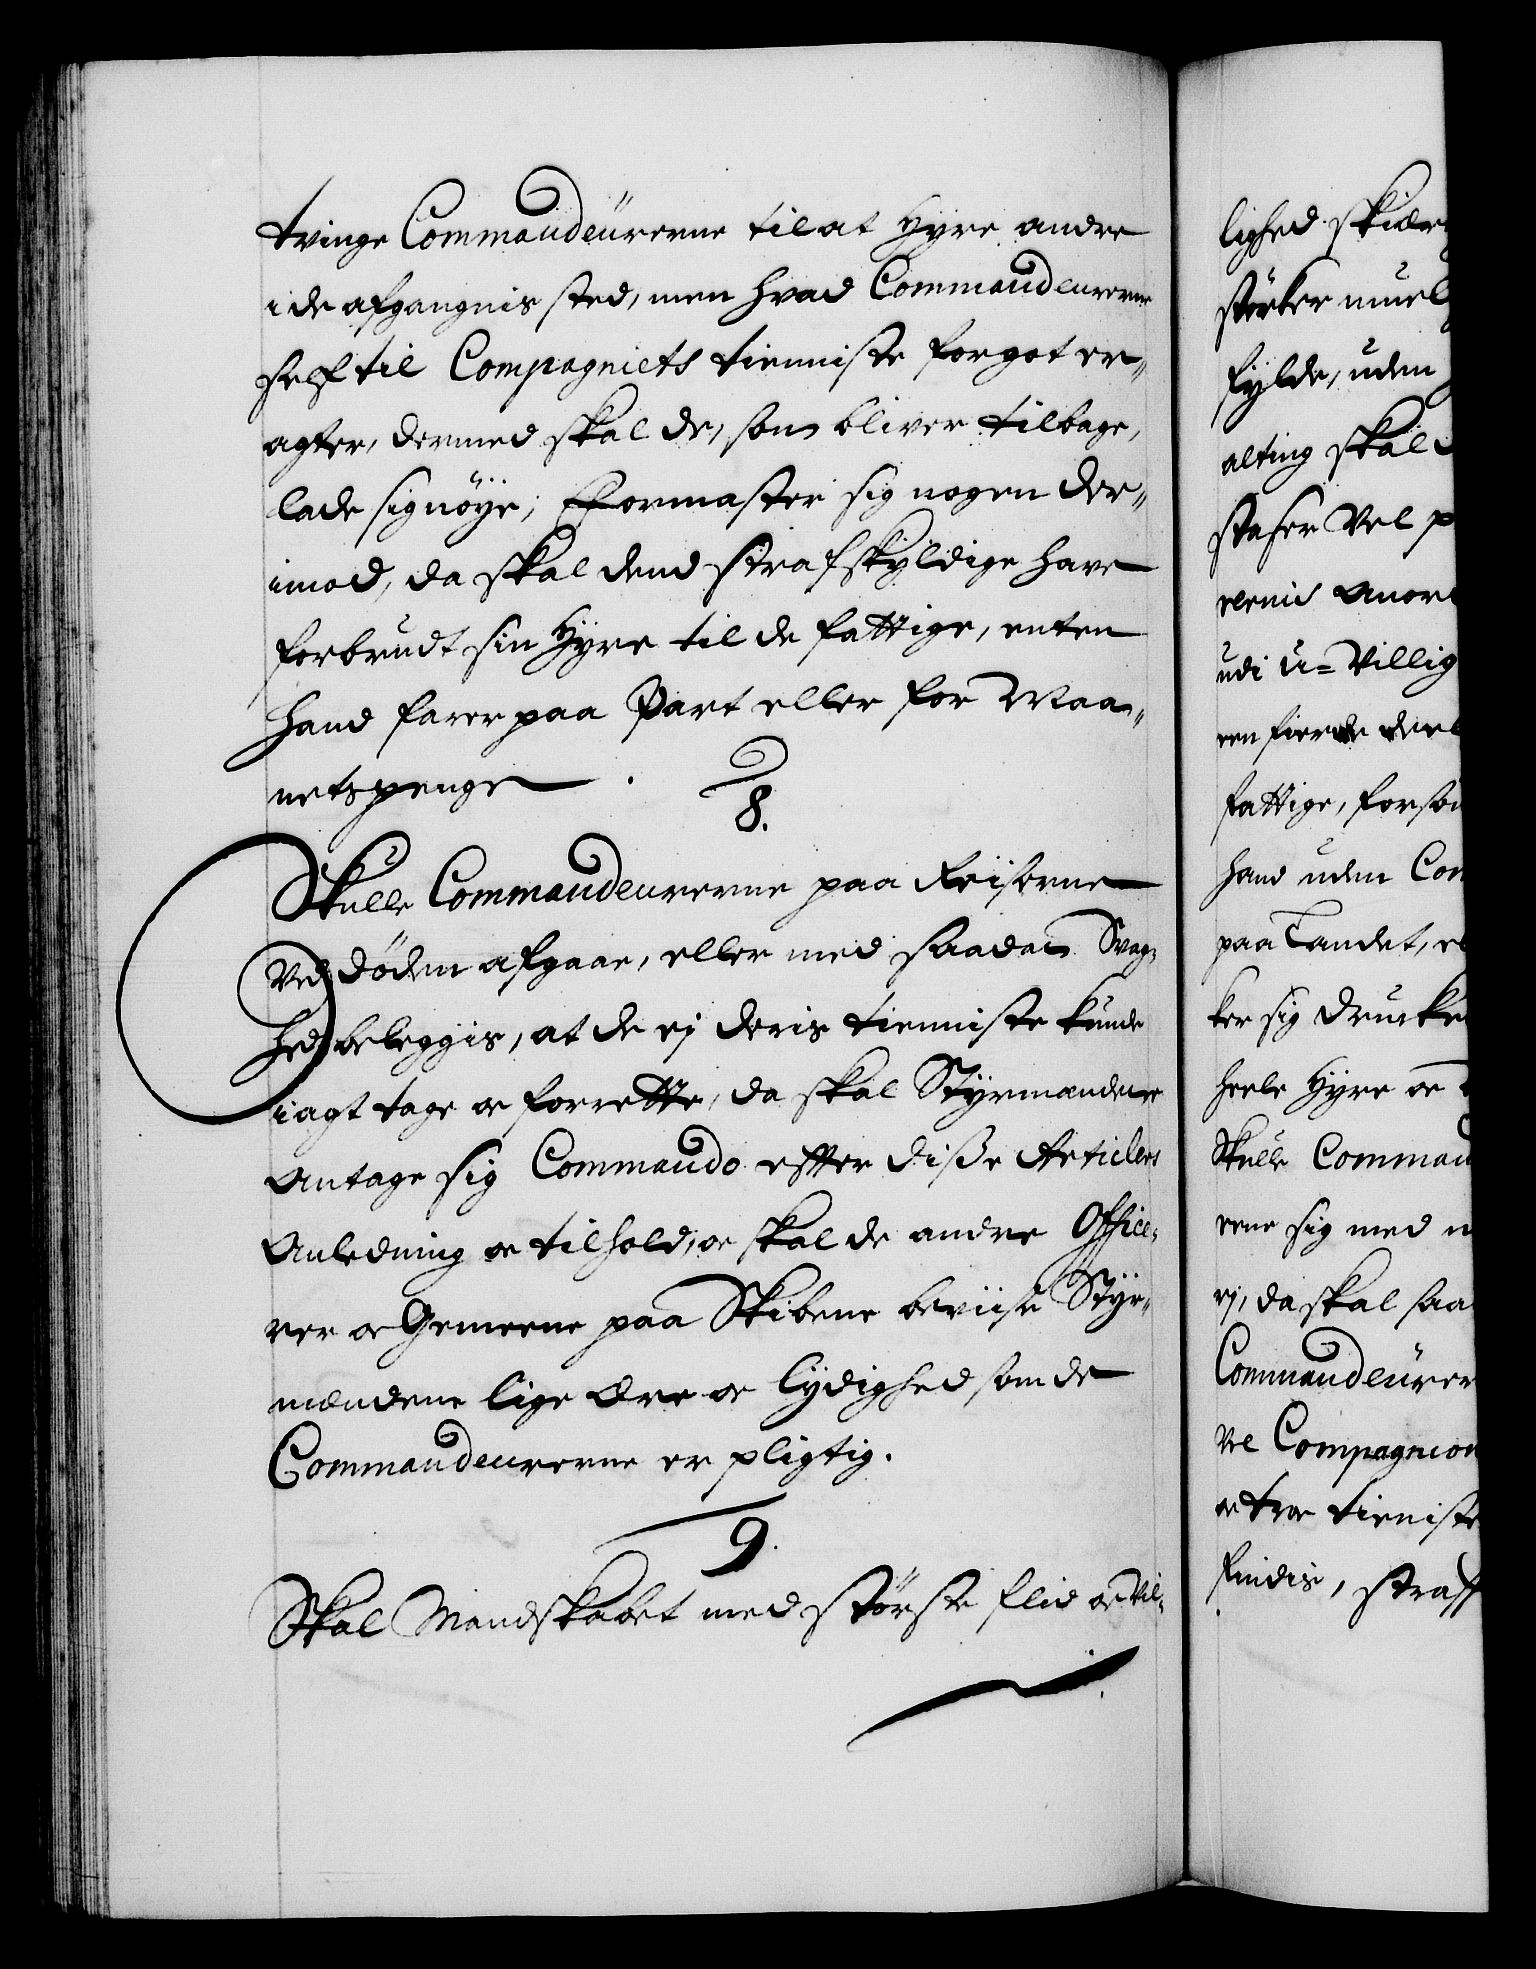 tvinge Commandeürerne til at Hyre andre
i de afgangnis sted, men hvad Commandeurerne
self til Compagniets tienniste for got er„
agter, dermed skal de, som bliver tilbage,
lade sig nöye; Formaster sig nogen der„
imod, da skal dend strafskyldige have
forbrudt sin Hyre til de fattige, enten
hand farer paa Part eller for Maa„
netspenge.
8.
Skulle Commandeurerne paa Reiserne
ved döden afgaae, eller med saadan Svag„
hed beleggis, at de ej deris tienniste kunde
i agt tage og forrette, da skal Styrmændene
Antage sig Commando efter diße Articlers
Anledning og tilhold, og skal de andre Office„
rer og Gemeene paa Skibene beviise Styr„
mændene lige Ære og lydighed som de
Commandeurerne er pligtig.
9.
Skal Mandskabet med störste flid og vil„
lighed skiær
störker muel
fylde, uden
alting skal
staser vel p
udi u=villig
een fierde deel
fattige, forsöm
hand uden Com
paa Landet, el
ker sig drucken
heele Hyre og
Skulle Comman
rene sig med n
ej, da skal saa
Commandeürer
vel Compagnion
og troe tieniste
findis, straff